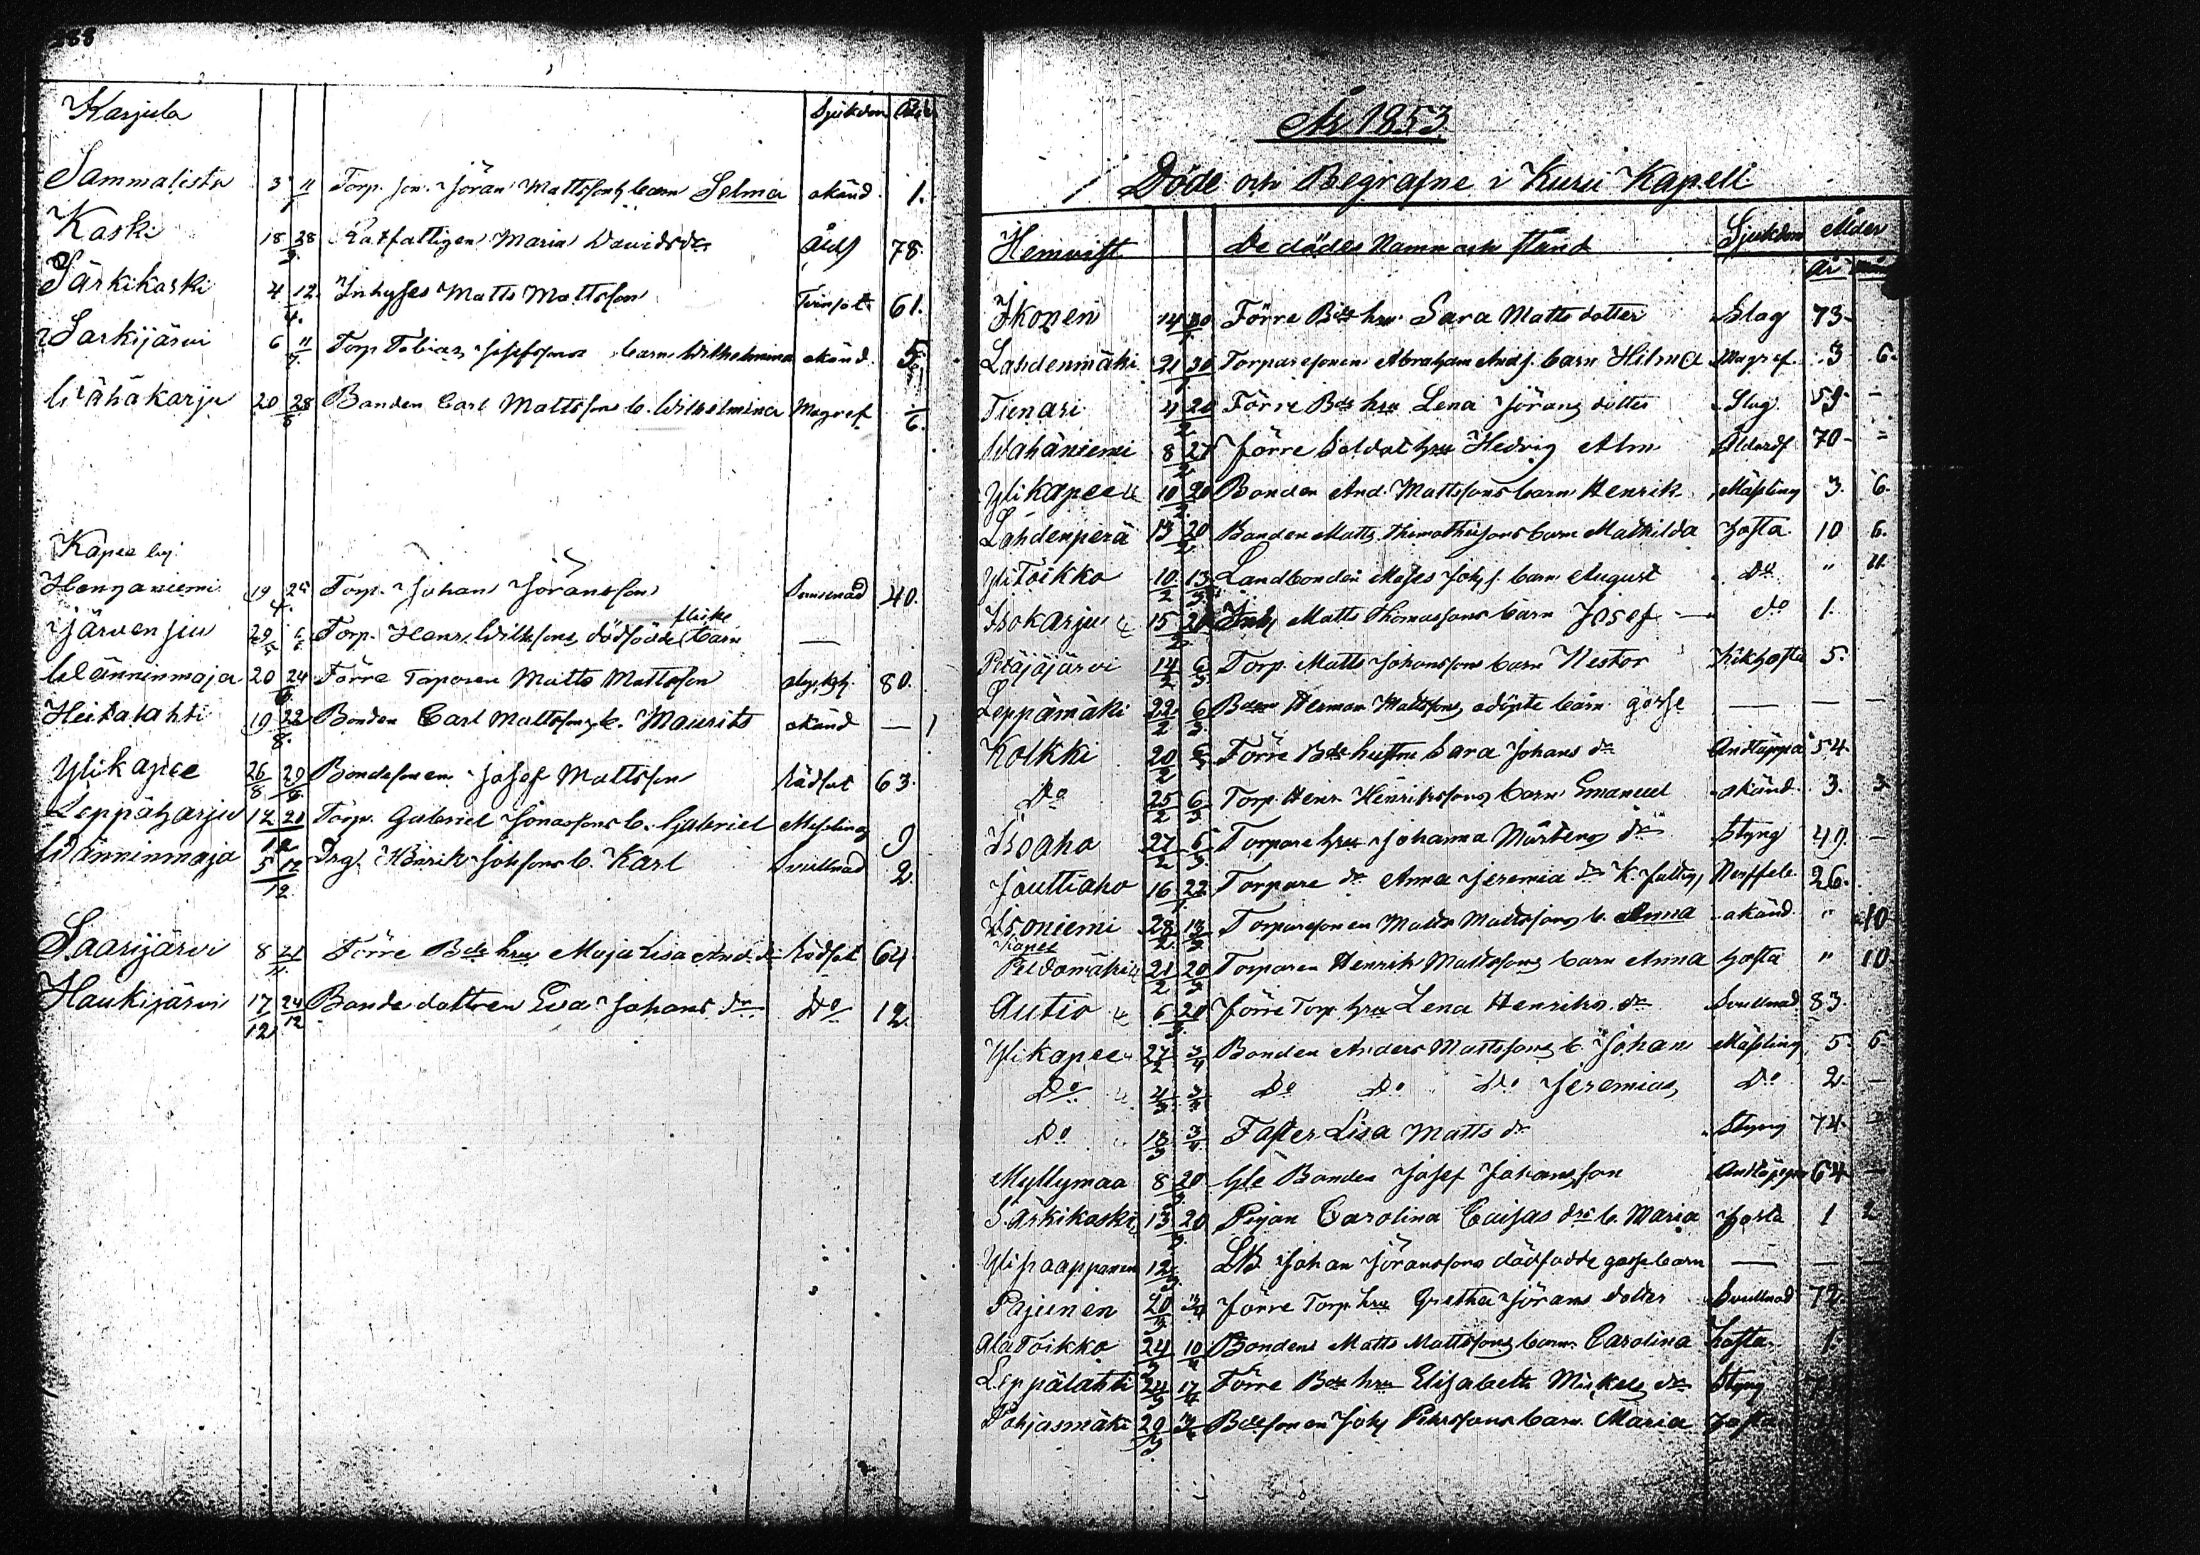 Karjula Sjukdom
Sammalisto 3 11/1 Torp. son. Jöran Mattssons barn Selma okänd 1.
Kaski 18 28/3 Rotfattigen Maria Davidsdr 78.
Särkikoski 4 12/4. Inhyses Matts Mattsson Tvinsot 61.
Särkijärvi 6 11 Torp Tobias Josefssons barn Wilhelmina okänd
Wähäkarju 20 28 Bonden Carl Mattssons b. Wilhelmina Magref
Kapee by
19 25 Torp. Johan Jöransson 40.
Järvensuu 29 Torp. Henr. dödfödde flicke barn —
Wänninmaja 20 24/6 Förre Torparen Matts Mattsson 80.
Heitalahti 19 22/8. Bonden Carl Mattssons b. Maurits okänd — 1
Ylikapee 26/8 29 Bondesonen Josef Mattsson Rödsot 63.
Leppäharju 12 20/12 Torp. Gabriel Jonassons b. Gabriel Messling 9
Wänninmaja 5 12/12 Henrik b. Karl Svullnad 2.
Saarijärvi 8 21/11 Förre Bde hru Maja Lisa And. dr Rödsot 64.
Haukijärvi 17/12 24/12 Bonde dottren Eva Johans dr Do 12
År 1853
Döde och Begrafne i Kuru Kapell
Hemvist De dödes Namn och stånd Sjukdom Ålder
år
Ikonen 14 30 Förre Bde hru Sara Matts dotter Slag 73-
Lahdenmäki 21 30/1 Torparesonen Abraham Ands. barn Hilma Magref 3 6.
Tienari 4 20/2 Förre Bde hru Lena Jörans dotter Slag. 59- -
Wähäniemi 8 27/2 Förre Soldat hru Hedvig Alm Ålderdf 70-
Ylikapee 10 20/2 Bonden And. Mattssons barn Henrik Mässling 3. 6.
Lahdenperä 13 20/2 Bonden Matts Thimotheussons barn Mathilda hosta 10 6.
Yli Toikko 10/2 13/3 Landbonden Moses Johs s. barn August Do " 11
Isokarju 15 20/2 Inhy Matts Thomassons barn Josef — do 1.
Pitäjäjärvi 14/2 6/3 Torp. Matts Johanssons barn Nestor Kikhosta 5.
Leppämäki 22/2 6/3 Bden Herman Mattssons odöpte barn gosse — — —
Kolkki 20/2 6/3 Förre Bde hustru Sara Johans dr Andtäppa 54.
Do 25/2 6/3 Torp. Henr Henrikssons barn Emanuel okänd 3. 3
Isoaho 27/2 6/3 Torpare hru Johanna Mårtens dr Styng 49. —
Jouttiaho 16 22 Torpare dr Anna Jeremia dr 26.
Isoniemi 28/2 13/3 Torparesonen Matts Mattssons b. Anna okänd " 10
Kapee
Peldomäki 21/2 20/3 Torparen Henrik Mattssons barn Anna hosta " 10.
Autio 6 20/3 Förre Torp hru Lena Henriks dr Svullnad 83.
Ylikapee 27/2 3/4 Bonden Anders Mattssons b. Johan Mässling 5. 6
Do 4/3 3/4 Do Do Do Jeremias Do 2. —
Do 18/3 3/4 Faster Lisa Matts dr Styng 74.
Myllymaa 8 20/3 Gle Bonden Josef Johansson Andtäppa 64. —
Särkikoski 13 20/3 Pigan Carolina Caisas drs b. Maria hosta 1 2
Ylihaapponen 12/3 LB Johan Jöranssons dödfödde gossebarn — —
Pajunen 20/3 Förre Torp. hru Gretha Jörans dotter Svullnad 72
Ala Toikko 24/3 10/4 Bonden Matts Mattssons barn Carolina hosta 1.
Leppälahti 24/3 17/4 Förre Bde hru Elisabeth Mickels dr Styng
Pohjasmäki 29/3 Bdesonen Johs Pehrssons barn Maria hosta